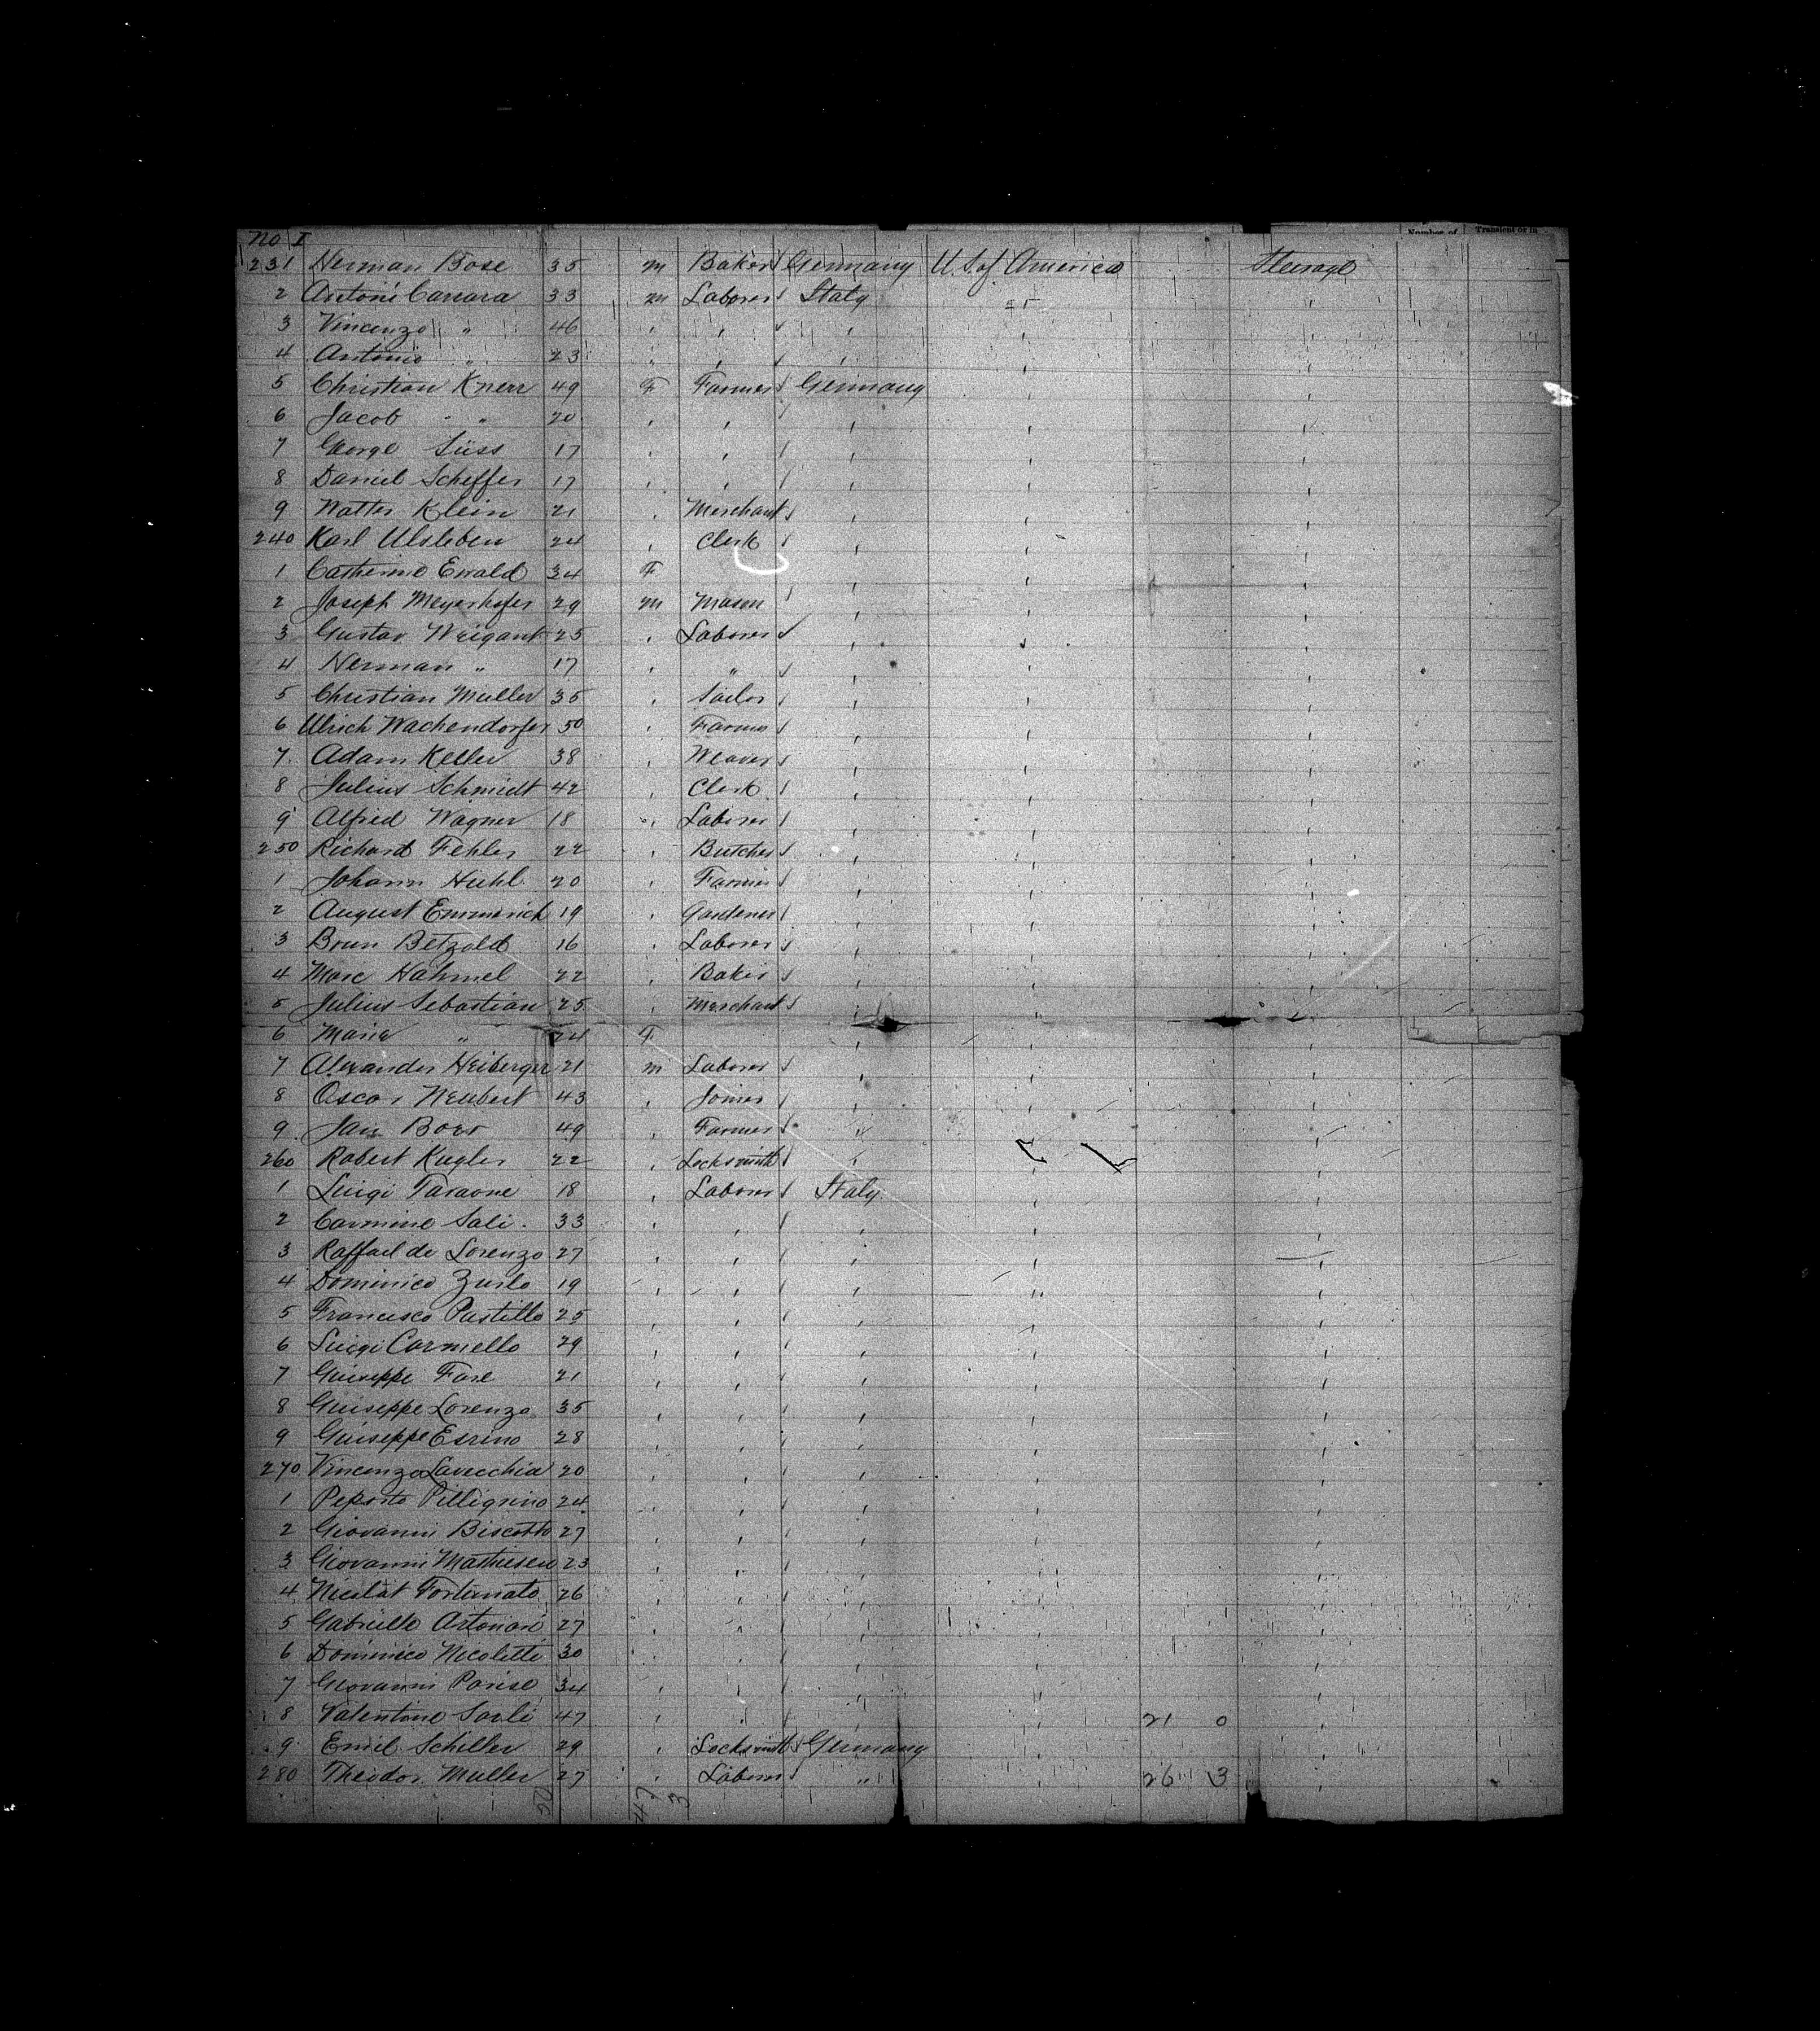 No I
Number of Transient or in
231 Herman Bose 35 m Baker Germany U.S. of America Steerage
2 Antoni Carrara 33 m Laborer Italy
3 Vincenzo " 46
4 Antonio " 23
5 Christian Knerr 49 F Farmer Germany
6 Jacob " 20
7 George Süss 17
8 Daniel Scheffer 17
9 Klein 21 Merchant
240 Karl Ulsleben 24 Clerk
1 Catherine Ewald 34 F
2 Joseph Meyerhofer 29 m Mason
3 Gustav Weigant 25 Laborer
4 Herman " 17 "
5 Christian Muller 35
6 Ulrich Wachendorfer 50 Farmer
7 Adam Keller 38 Weaver
8 Julius Schmidt 42 Clerk
9 Alfred Wagner 18 Laborer
250 Richard Fehler 22 Butcher
1 Johann Huhl 20 Farmer
2 August Emmerich 19 Gardener
3 Brun Betzold 16 Laborer
4 Hahmel 22 Baker
5 Julius Sebastian 25 Merchant
6 Marie " 24 F
7 Alexander Heiberger 21 m Laborer
8 Oscar Neubert 43 Joiner
9 Jan 49 Farmer "
260 Robert Kugler 22 Locksmith
1 Luigi Taraone 18 Laborer Italy
2 Carmine Sali 33
3 Raffael de Lorenzo 27
4 Dominico Zurlo 19
5 Francesco Pastillo 25
6 Luigi Carmello 29
7 Giuseppe Fare 21
8 Giuseppe Lorenzo 35
9 Giuseppe Esrino 28
270 Vincenzo Lavecchia 20
1 Pelligrino 24
2 Giovanni Biscotto 27
3 Giovanni 23
4 Fortunato 26
5 Gabriello 27
6 Dominico Nicoletti 30
7 Giovanni Parise 34
8 Valentino Sarli 47 21 0
9 Emil Schiller 29 Locksmith Germany
280 Theodor Muller 27 Laborer " 26 3
47 3